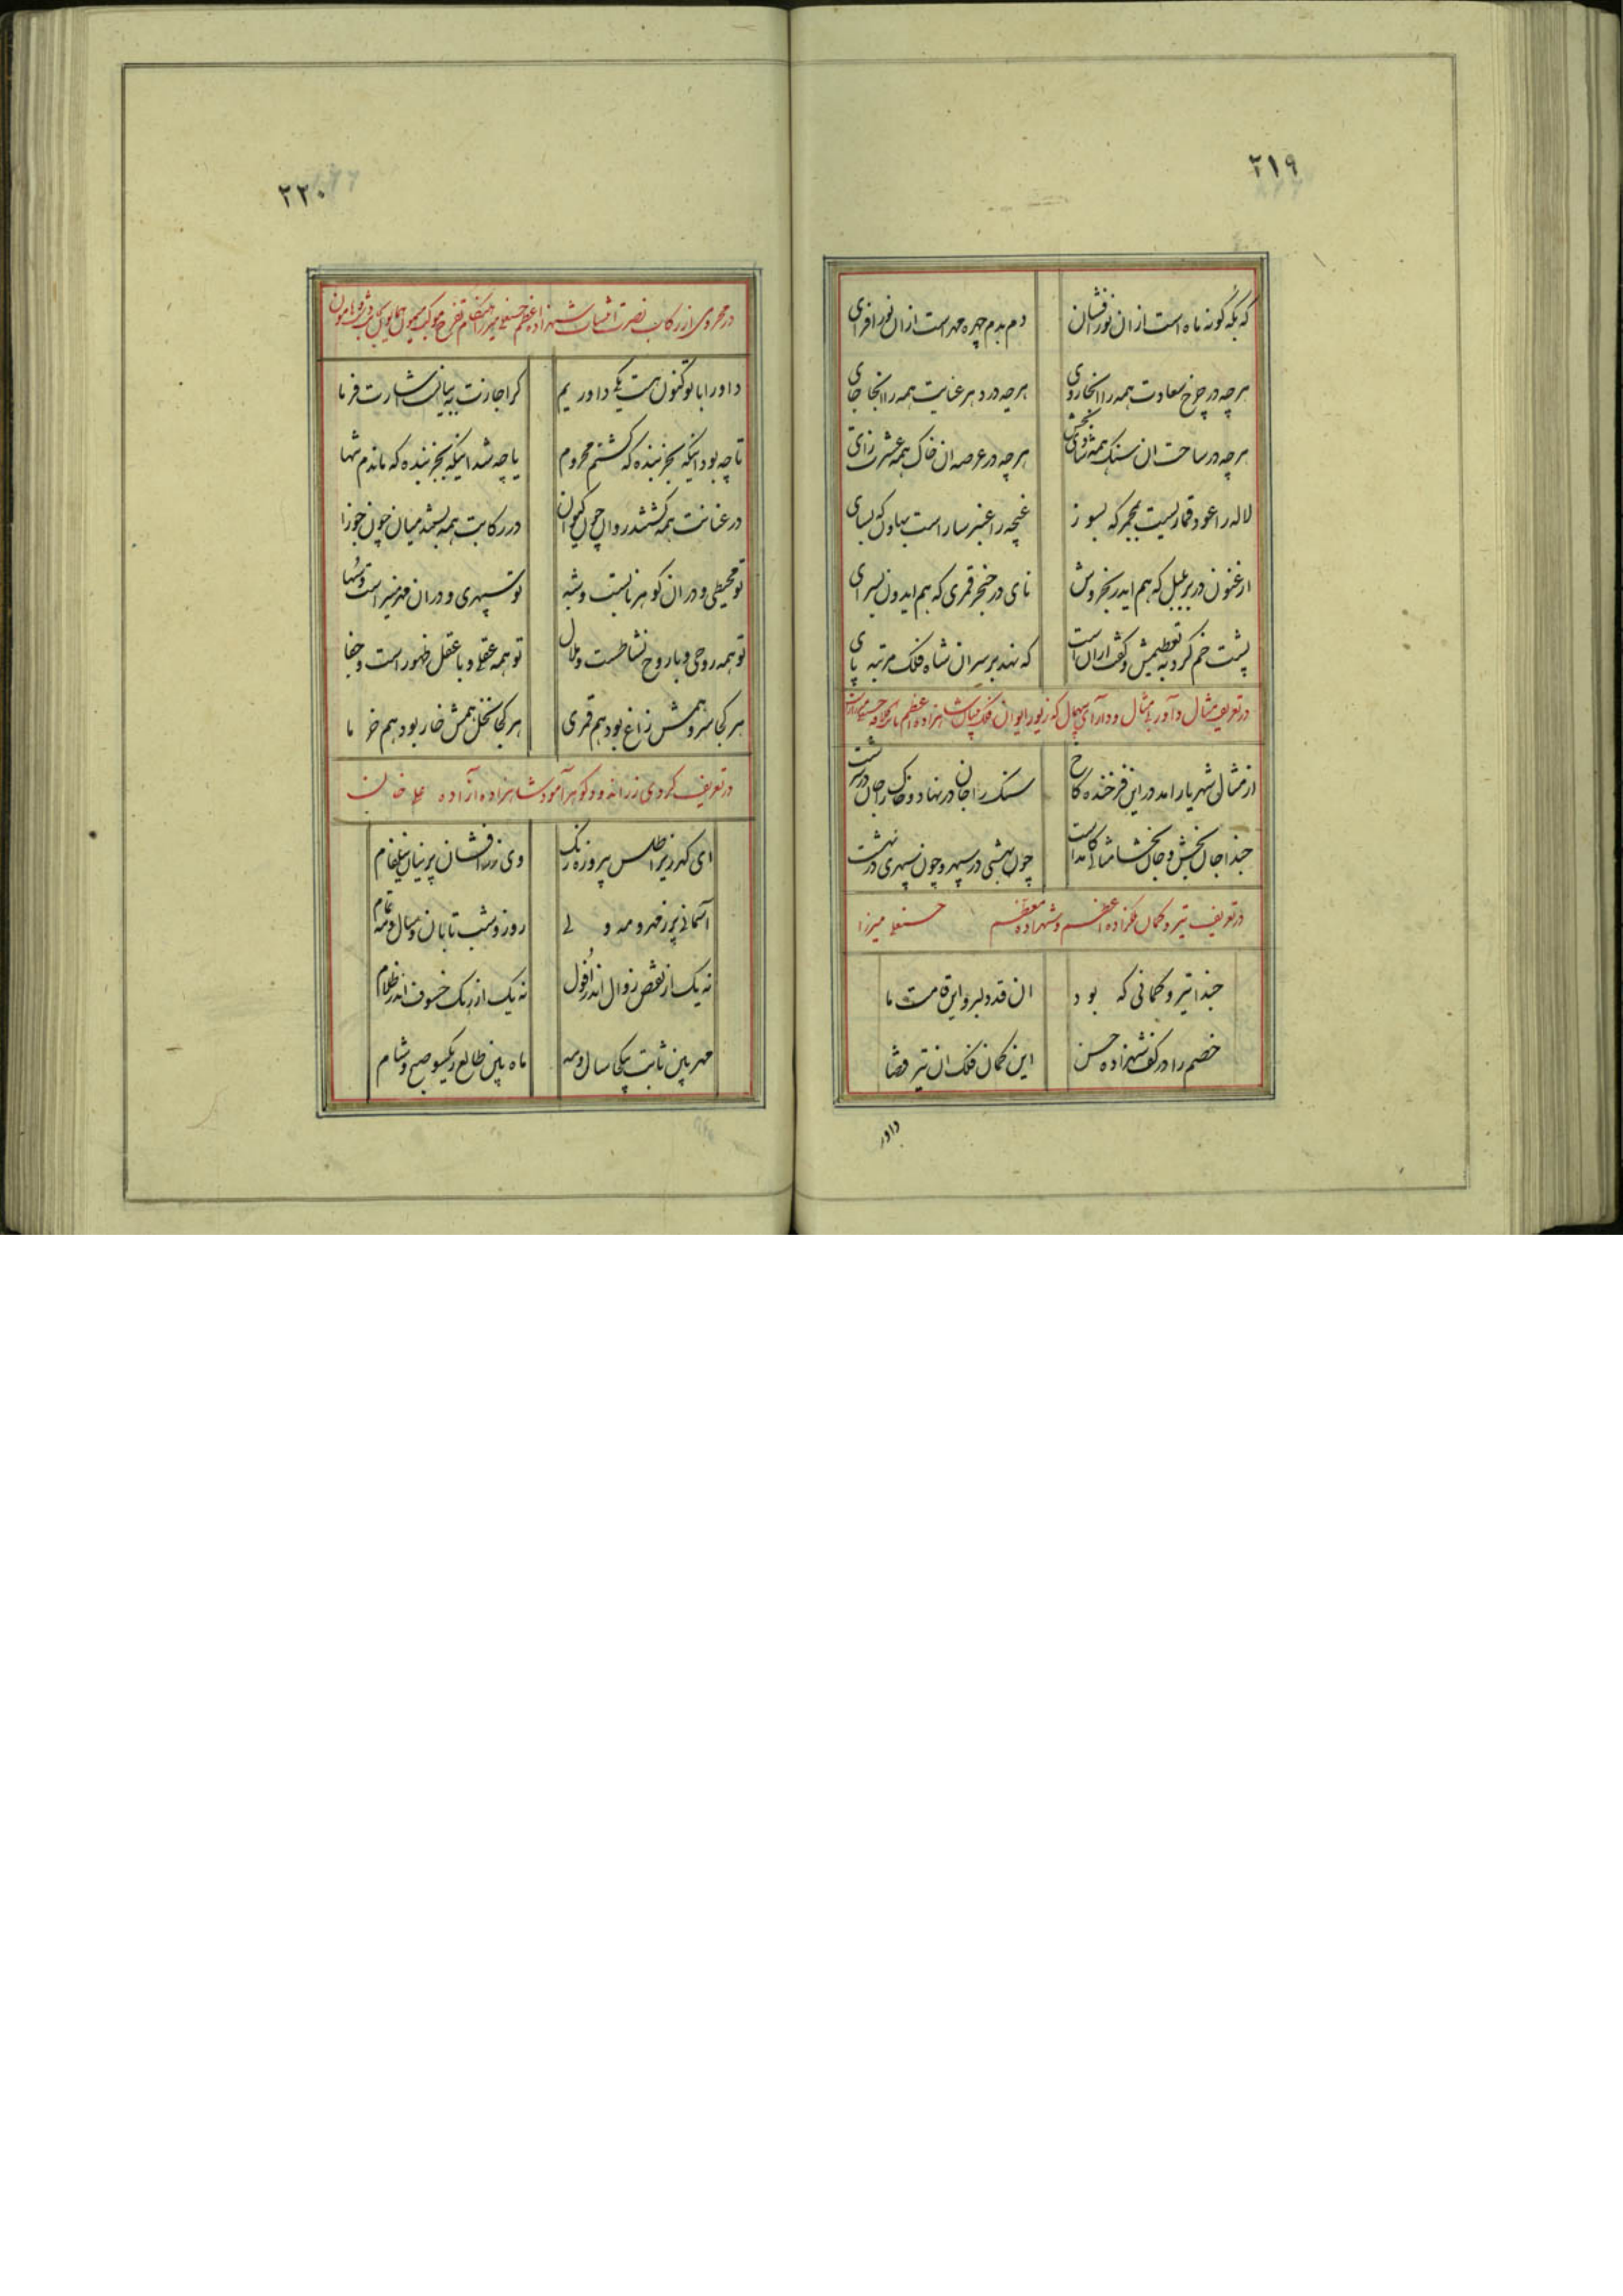 ۲۱۹
که بکه کونه ماه است از ان نور افشان دم بدم چهره مهر است از ان نور افزای
هر چه در چرخ سعادت همه را انجا روی هر چه در دهر عنایت همه را انجا جای
هر چه در ساحت ان سنک همه هر چه در عرصه ان خاک همه عشرت زای
لاله را عود قماریست بمجمر که بسوز غنچه را عنبر ساراست بهاون که بسای
ارغنون در بر بلبل که هم ایدر بخروش نای در حنجر قمری که هم ایدون بسرای
پشت خم کرده بتعظیمش و کف ازان است که نهد بر سر ان شاه فلک مرتبه پای
در تعریف مثال داور بی مثال و دارای بیهمال که زیور ایوان فلک شاهزاده اعظم
از مثالی شهریار امد در این فرخنده کاخ سنک را جان در نهاد و خاک را جان در سرشت
حبذا جان بخش و جان بخشا مثالی کامده است چون بهشتی در سپهر و چون سپهری در بهشت
در تعریف تیر و کمان ملکزاده اعظم و شهزاده معظم حسنعلی میرزا
حبذا تیر و کمانی که بود ان قد دلبر و این قامت ما
خصم را در کف شهزاده حسن این کمان فلک ان تیر قضا
داور
۲۲۰
در محرومی از رکاب نصرت شهزاده اعظم حسنعلی میرزا هنکام تفرج موکب همایون
داورا با تو کنون هست یکی داوریم کر اجازت به بیانیست اشارت فرما
تا چه بود اینکه بجز بنده که کشتم محروم یا چه شد اینکه بجز بنده که ماندم تنها
در عنانت همه کشتند روان چون کیوان در رکابت همه بستند میان چون جوزا
تو محیطی و در ان کوهر نابست و شبه تو سپهری و در ان منیر است و سها
تو همه روحی و با روح نشاطست و ملال تو همه عقلی و با عقل ظهور است و خفا
هر کجا سرو همش زاغ بود هم قمری هر کجا نخل همش خار بود هم خرما
در تعریف کردی زر اندود کوهر آمود شاهزاده آزاده علیخان
ای کهر ریز اطلس پیروزه رنک وی زر افشان پرنیان نیلفام
آسمانی پر ز مهر و مه ولی روز و شب تابان و سال و مه تمام
نه یک از نقص زوال اندر افول نه یک از رنک خسوف اندر ظلام
مهر بین ثابت بیکجا سال و مه ماه بین طالع بیکسو صبح و شام